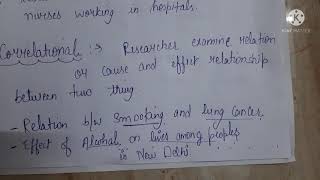 nurses working in hospitals.
Correlational :→ Researcher examine relation
or cause and effect relationship
between two thing
- Relation b/w smooking and lung cancer.
- Effect of Alcohal on lives among peoples
in New Delhi.